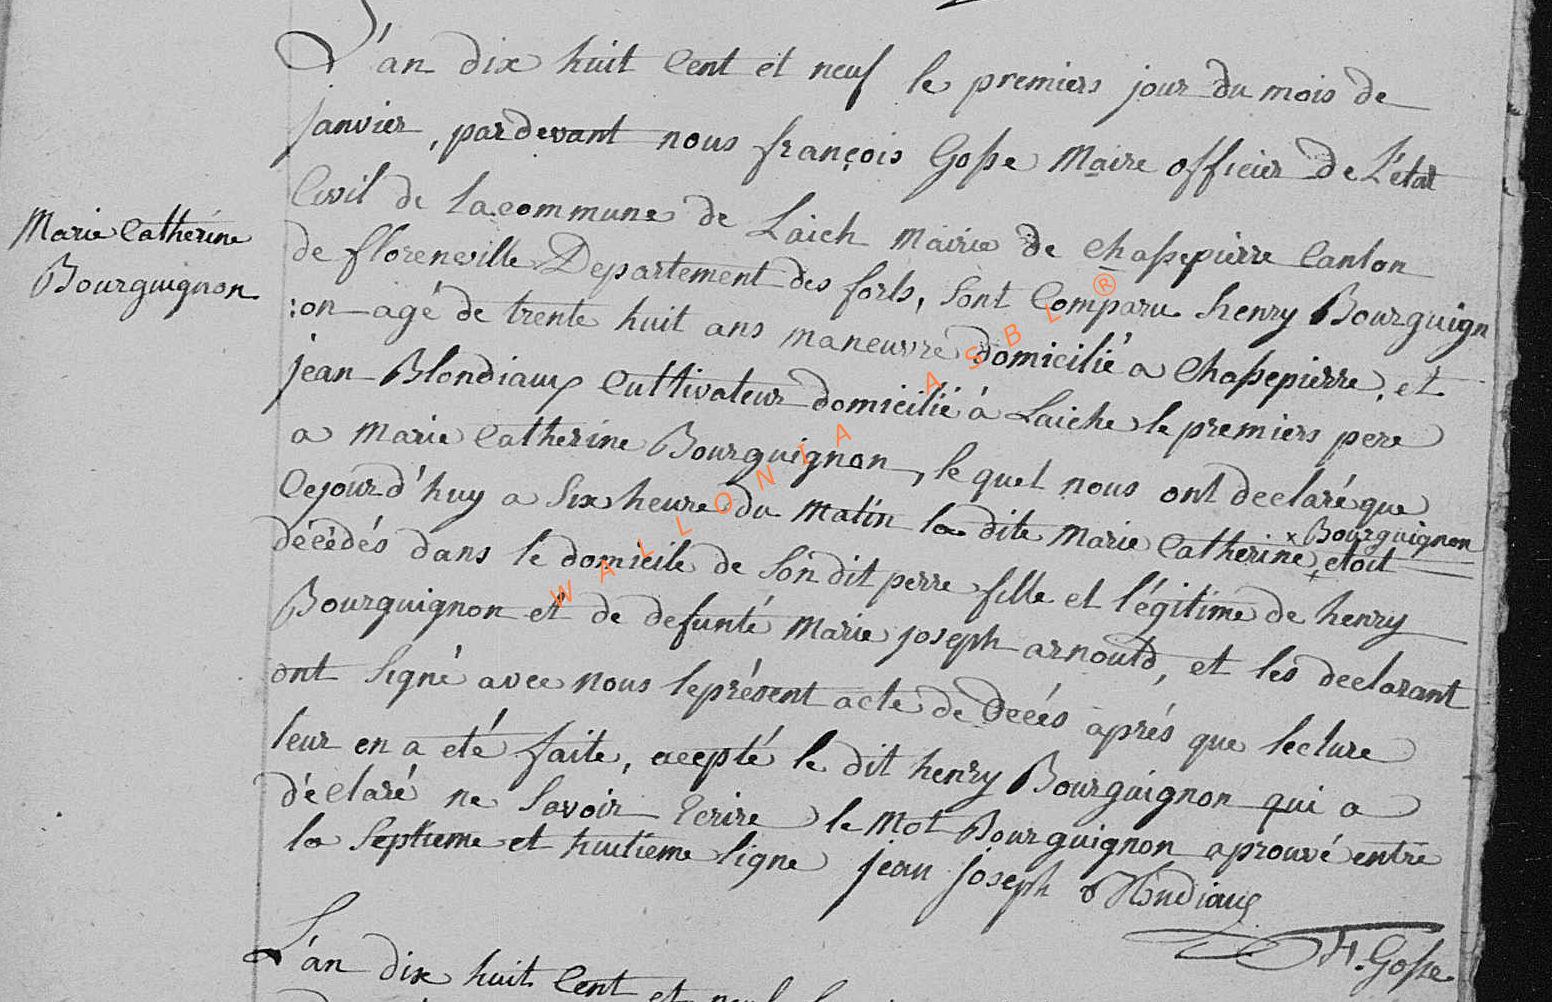 L'an dix huit Cent et neuf le premiers jour du mois de
janvier, pardevant nous françois Gosse Maire officier de L'état
Civil de la commune de Laich Mairie de Chassepierre Canton
Marie Catherine
Bourguignon
de florenville Departement des forts, sont Comparu henry Bourguign
:on agé de trente huit ans maneuvre domicilié a Chassepierre, et
jean Blondiaux Cultivateur domicilié à Laiche le premiers pere
a Marie Catherine Bourguignon, le quel nous ont declaré que
Cejourd'huy a Six heure du Matin la dite Marie Catherine × Bourguignon etoit
décédés dans le domicile de Son dit perre fille et légitime de henry
Bourguignon et de defunté Marie joseph arnould, et les declarant
ont Signé avec nous le présent acte de Décés aprés que lecture
leur en a eté faite, acepté le dit henry Bourguignon qui a
déclaré ne Savoir Ecrire le Mot Bourguignon aprouvé entre
la Septieme et huitieme ligne jean joseph Blondiaux
F. Gosse
L'an dix huit Cent et neuf
WALLONIA ASBL ®